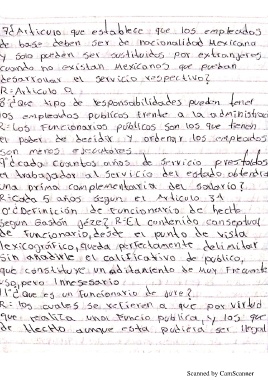 7¿Articulo que establece que los empleados
de base deben ser de nacionalidad Mexicana
y solo pueden ser sustituidos por extranjeros
cuando no existan Mexicanos que puedan
desarrollar el servicio respectivo?
R=Articulo 9
8¿que tipo de responsabilidades pueden tener
los empleados publicos frente a la administracio
R=Los Funcionarios publicos son los que tienen
el poder de decidir y ordenar los empleados
son meros ejecutores
9¿cada cuantos años de servicio prestados
el trabajador al servicio del estado obtendra
una prima complementaria del salario?
R=Cada 5 años segun el Articulo 34
0¿Definición de funcionario de hecho
segun Gastón Jéze? R=El contenido conseptual
de funcionario, desde el punto de vista
lexicográfico, queda perfectamente delimitar
sin añadirle el calificativo de público,
que constituye un aditamiento de muy frecuente
uso, pero innesesario
1¿que es un funcionario de jure?
R= los cuales se refieren a que por virtud
que realiza una funcio publica, y los que
de Hecho aunque esta pudiera ser ilegal
Scanned by CamScanner